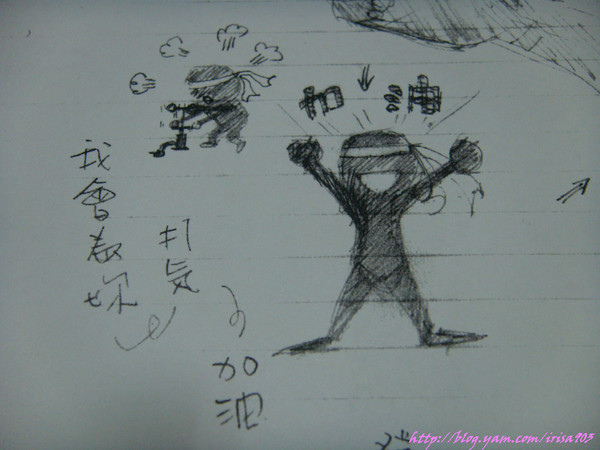 加油
我會為妳
打氣
加油
http://blog.yam.com/irisa905